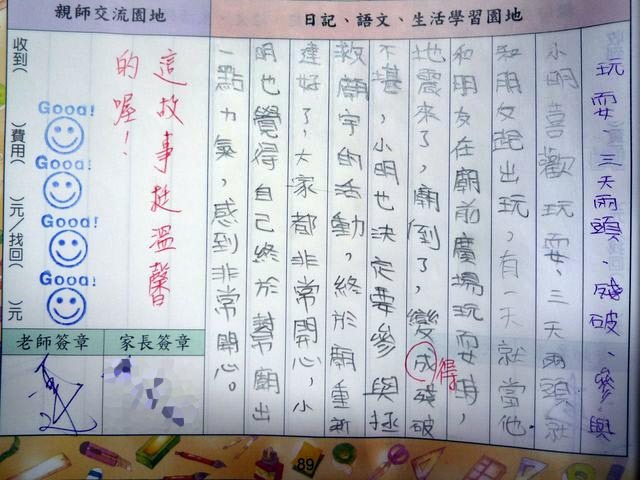 日記、語文、生活學習園地
玩耍、三天兩頭、殘破、參與
小明喜歡玩耍,三天兩頭就
和朋友跑出玩,有一天就當他
和朋友在廟前廣場玩耍時,
地震來了,廟倒了,變成殘破
得
不堪,小明也決定要參與拯
救廟宇的活動,終於廟重新
建好了,大家都非常開心,小
明也覺得自己終於幫廟出
一點力氣,感到非常開心。
親師交流園地
這故事挺溫馨
的喔!
Good!
Good!
Good!
Good!
收到( )費用( )元/找回( )元
家長簽章
老師簽章
89